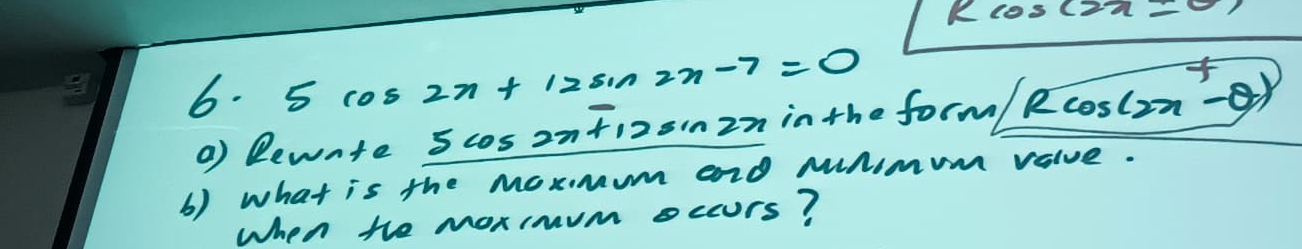 R cos (2x ± θ)
6. 5 cos 2x + 12 sin 2x - 7 = 0
a) Rewrite 5 cos 2x + 12 sin 2x in the form (R cos(2x ∓ θ))
b) what is the maximum and minimum value.
when the maximum occurs?